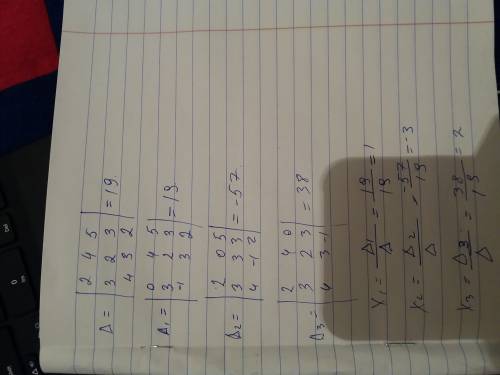 Δ = | 2 4 5 |
| 3 2 3 | = 19.
| 4 3 2 |
Δ₁ = | 0 4 5 |
| 3 2 3 | = 19
| -1 3 2 |
Δ₂ = | 2 0 5 |
| 3 3 3 | = -57.
| 4 -1 2 |
Δ₃ = | 2 4 0 |
| 3 2 3 | = 38
| 4 3 -1 |
X₁ = Δ₁/Δ = 19/19 = 1
X₂ = Δ₂/Δ = -57/19 = -3
X₃ = Δ₃/Δ = 38/19 = 2